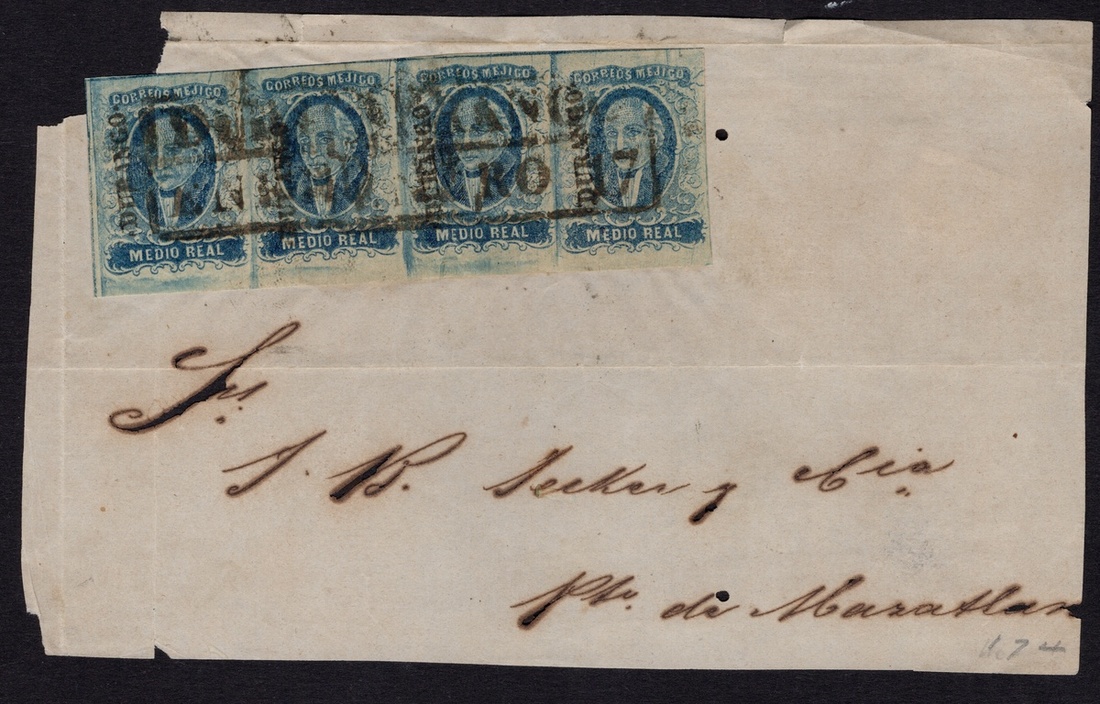 CORREOS MEJICO CORREOS MEJICO CORREOS MEJICO CORREOS MEJICO
DURANGO. DURANGO DURANGO DURANGO
ANGO
ENERO 17
MEDIO REAL MEDIO REAL MEDIO REAL MEDIO REAL
Srs.
J. B. Jecker y Cia
Pto. de Mazatlan